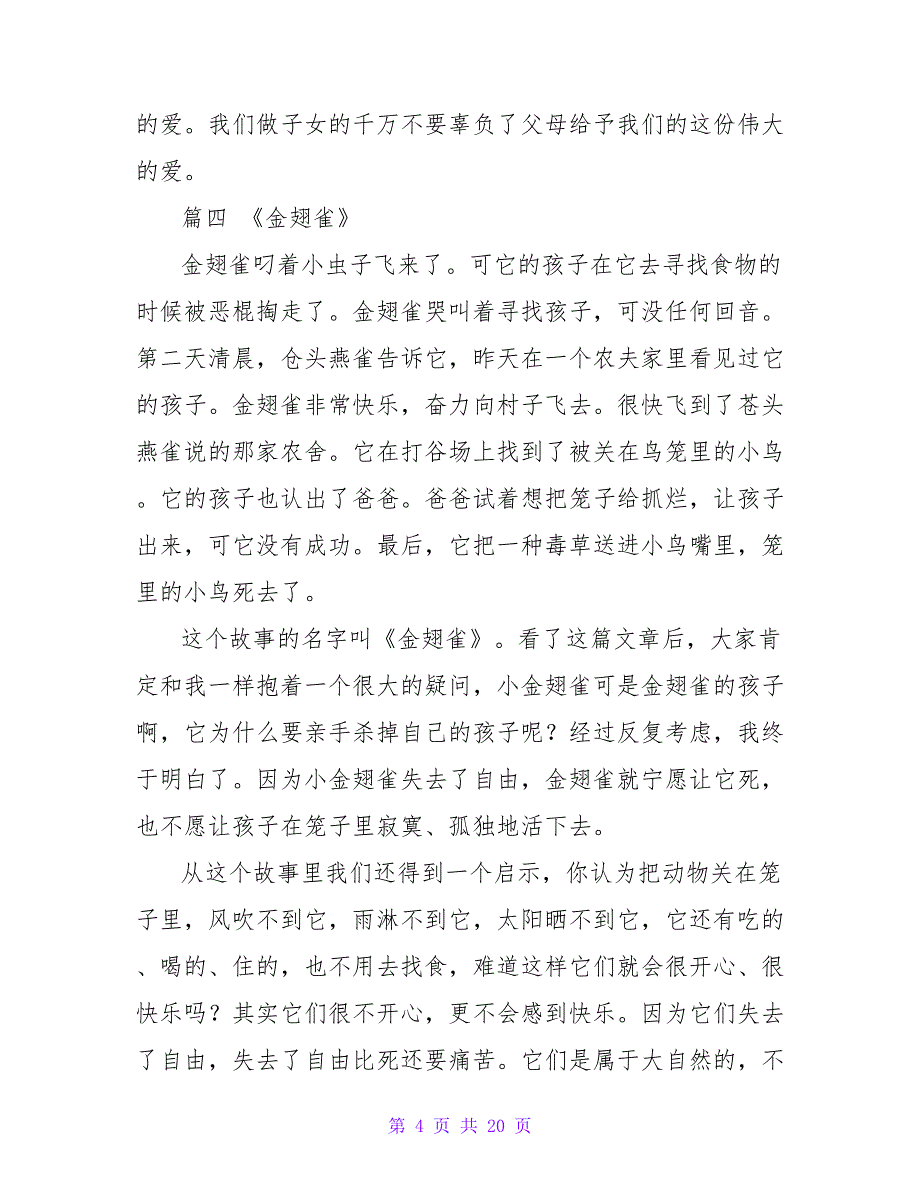 的爱。我们做子女的千万不要辜负了父母给予我们的这份伟大
的爱。
篇四 《金翅雀》
金翅雀叼着小虫子飞来了。可它的孩子在它去寻找食物的
时候被恶棍掏走了。金翅雀哭叫着寻找孩子，可没任何回音。
第二天清晨，仓头燕雀告诉它，昨天在一个农夫家里看见过它
的孩子。金翅雀非常快乐，奋力向村子飞去。很快飞到了苍头
燕雀说的那家农舍。它在打谷场上找到了被关在鸟笼里的小鸟
。它的孩子也认出了爸爸。爸爸试着想把笼子给抓烂，让孩子
出来，可它没有成功。最后，它把一种毒草送进小鸟嘴里，笼
里的小鸟死去了。
这个故事的名字叫《金翅雀》。看了这篇文章后，大家肯
定和我一样抱着一个很大的疑问，小金翅雀可是金翅雀的孩子
啊，它为什么要亲手杀掉自己的孩子呢？经过反复考虑，我终
于明白了。因为小金翅雀失去了自由，金翅雀就宁愿让它死，
也不愿让孩子在笼子里寂寞、孤独地活下去。
从这个故事里我们还得到一个启示，你认为把动物关在笼
子里，风吹不到它，雨淋不到它，太阳晒不到它，它还有吃的
、喝的、住的，也不用去找食，难道这样它们就会很开心、很
快乐吗？其实它们很不开心，更不会感到快乐。因为它们失去
了自由，失去了自由比死还要痛苦。它们是属于大自然的，不
第 4 页 共 20 页